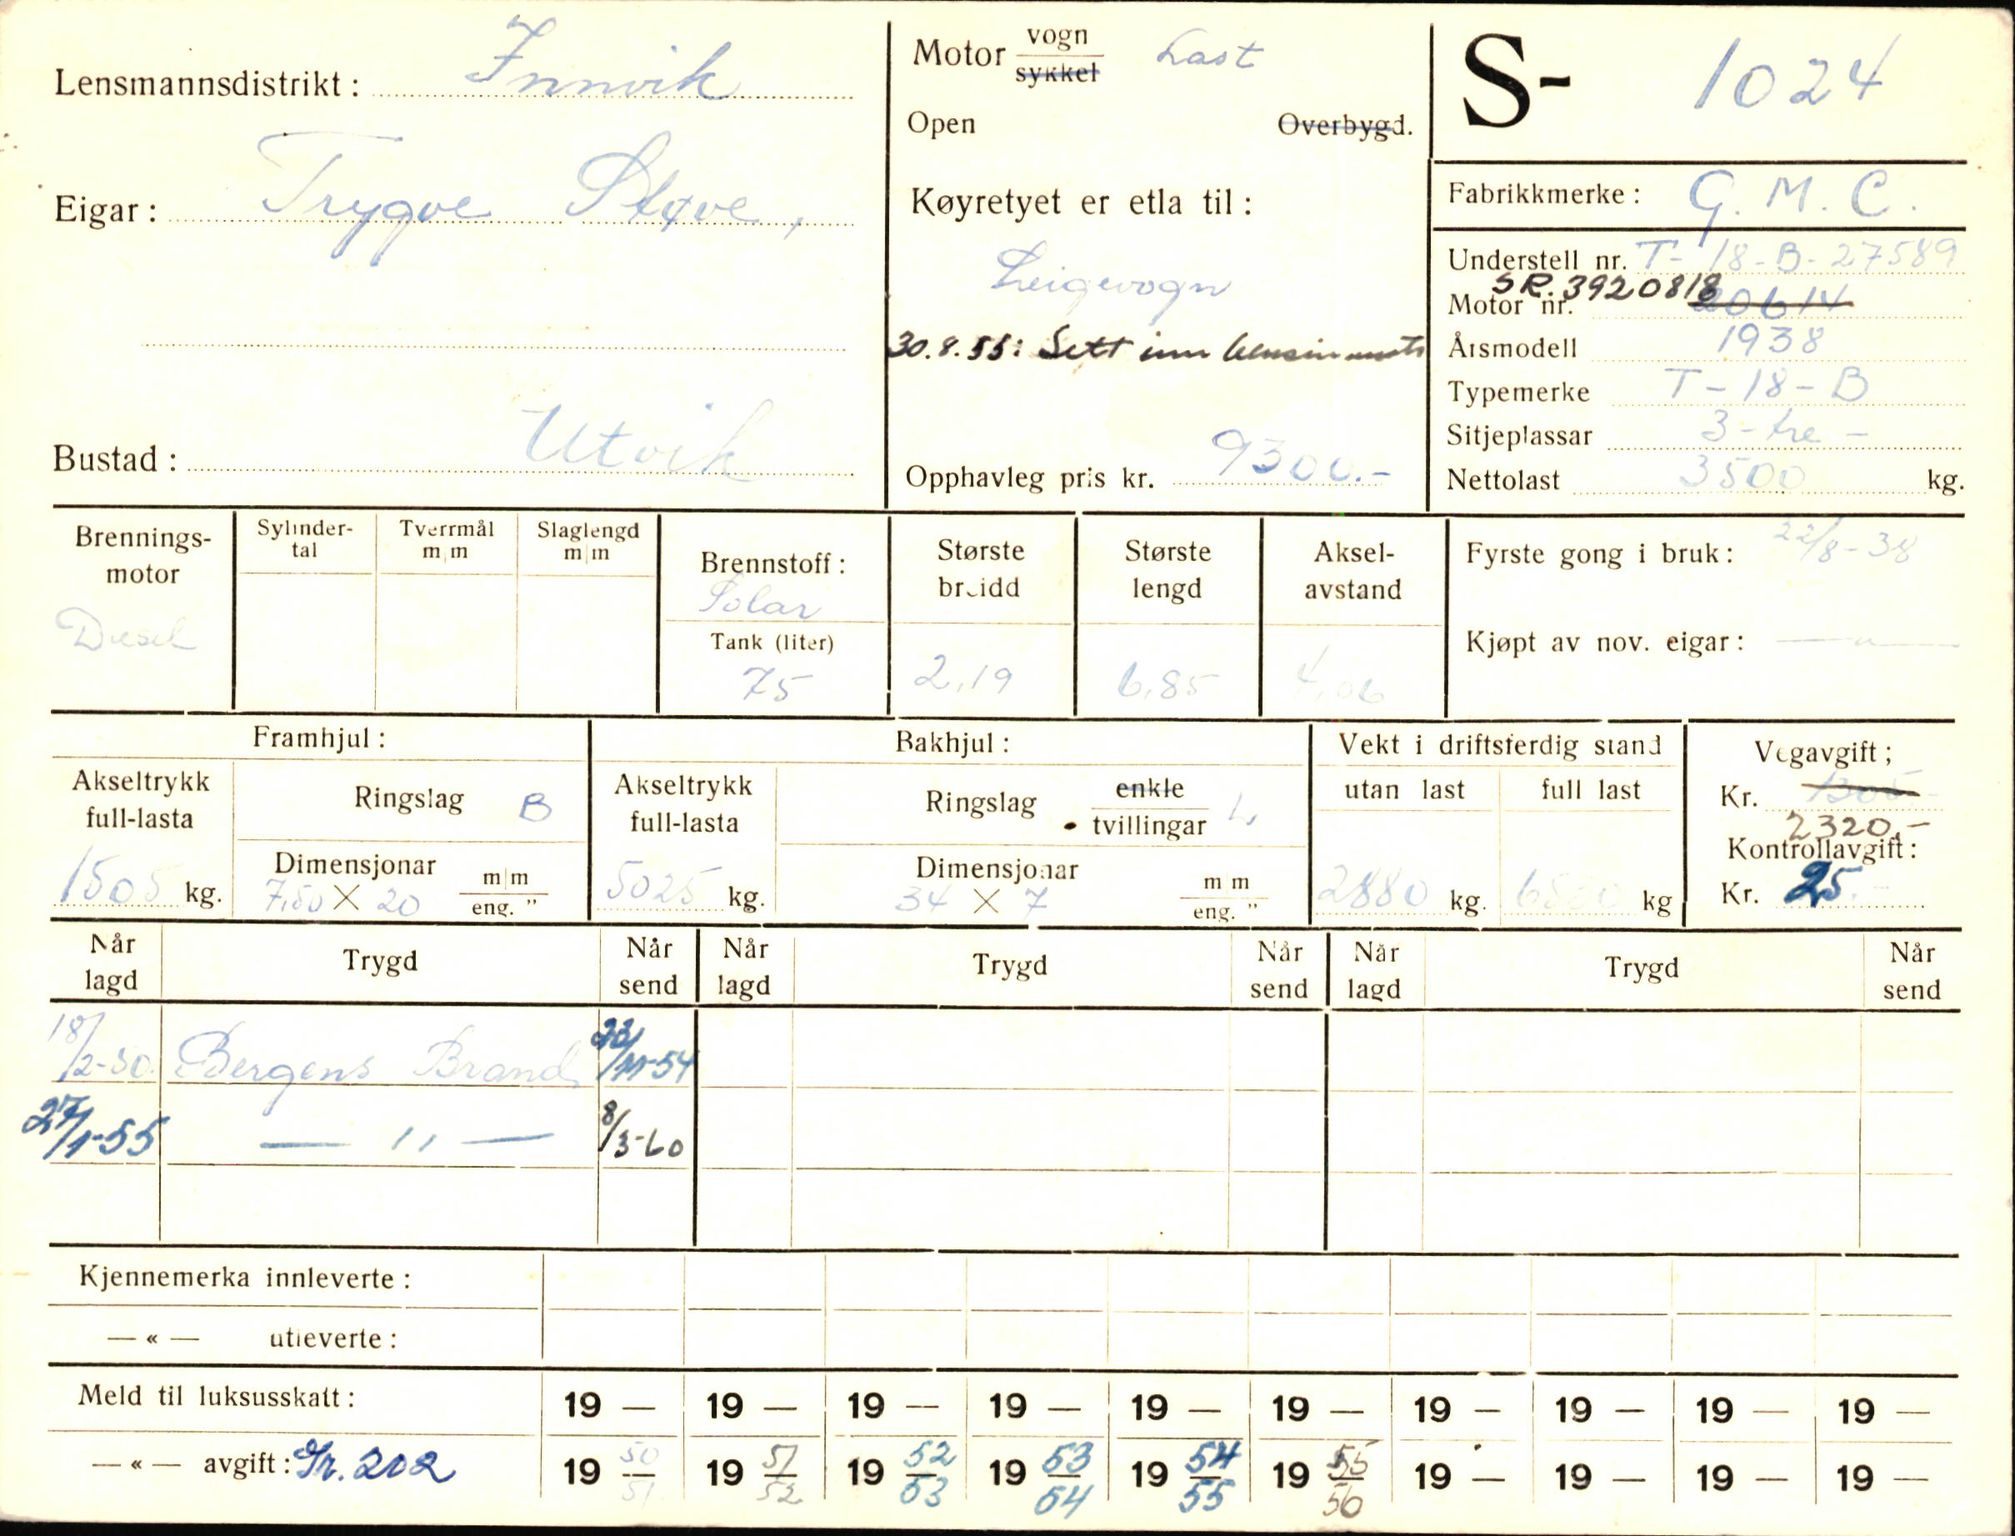 Lensmannsdistrikt: Innvik
Eigar: Trygve Støve,
Bustad: Utvik
Motor vogn
sykkel Last
Open Overbygd.
Køyretyet er etla til:
Leigevogn
30.8.55: Sett inn bensinmot.
Opphavleg pris kr. 9300.-
S- 1024
Fabrikkmerke: G. M. C.
Understell nr. T-18-B-27589
SR. 3920818
Motor nr. 20614
Årsmodell 1938
Typemerke T-18-B
Sitjeplassar 3-tre-
Nettolast 3500 kg.
Brennings-
motor
Diesel
Sylinder-
tal
Tverrmål
m/m
Slaglengd
m/m
Brennstoff:
Solar
Tank (liter)
75
Største
breidd
2,19
Største
lengd
6,85
Aksel-
avstand
4,06
Fyrste gong i bruk: 22/8-38
Kjøpt av nov. eigar: — " —
Framhjul:
Akseltrykk
full-lasta
1505 kg.
Ringslag B
Dimensjonar
7,50 X 20 m/m
eng. "
Bakhjul:
Akseltrykk
full-lasta
5025 kg.
Ringslag enkle
tvillingar L,
Dimensjonar
34 X 7 m/m
eng. "
Vekt i driftsferdig stand
utan last full last
2880 kg. 6530 kg
Vegavgift;
Kr. 1305.-
2320.-
Kontrollavgift:
Kr. 25.-
Når
lagd Trygd Når
send Når
lagd Trygd Når
send Når
lagd Trygd Når
send
18/2-50. Bergens Brand 23/11-54
27/1-55 — " — 8/3-60
Kjennemerka innleverte:
— « — utleverte:
Meld til luksusskatt: 19 — 19 — 19 — 19 — 19 — 19 — 19 — 19 — 19 — 19 —
— « — avgift: Gr. 202 19 50/51 19 51/52 19 52/53 19 53/54 19 54/55 19 55/56 19 — 19 — 19 — 19 —